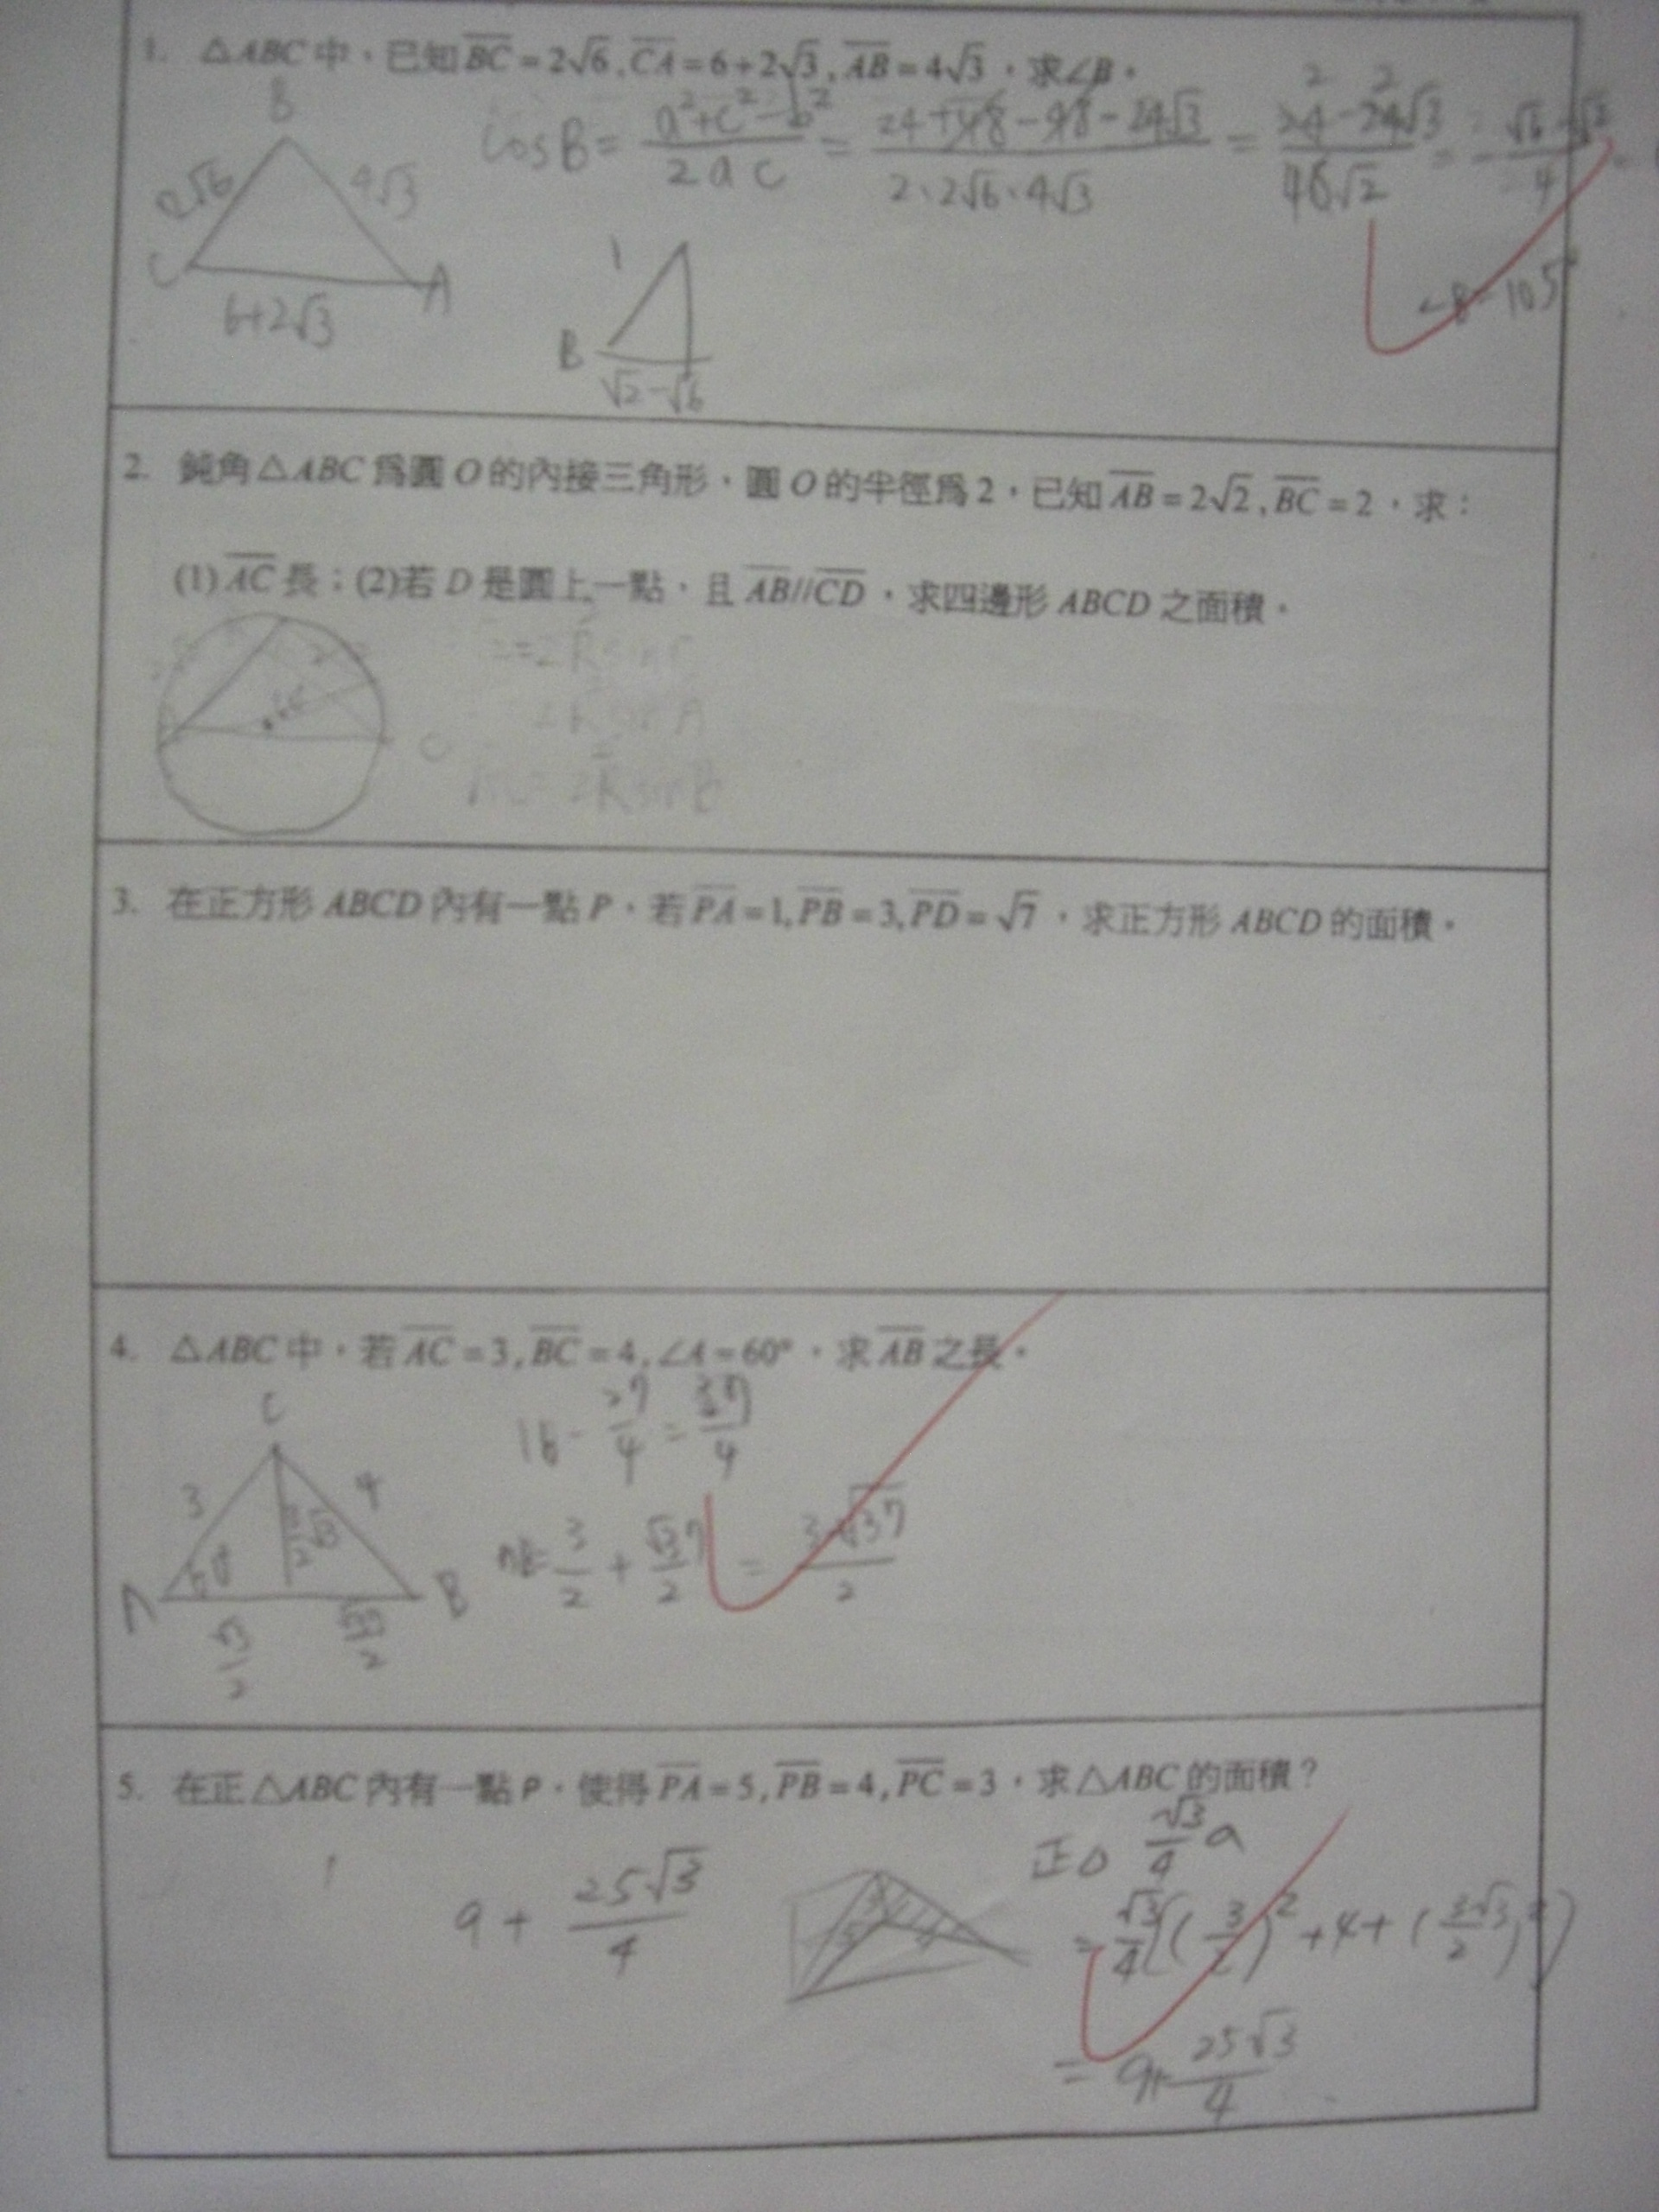 1. △ABC 中，已知 \overline{BC}=2√6, \overline{CA}=6+2√3, \overline{AB}=4√3，求∠B。
B
2√6
4√3
C
A
6+2√3
cosB = (a²+c²-b²)/(2ac) = (24+48-48-24√3)/(2·2√6·4√3) =
∠B=105°
1
B
√2-√6
2. 鈍角△ABC 為圓 O 的內接三角形，圓 O 的半徑為2，已知 \overline{AB}=2√2, \overline{BC}=2，求：
(1) \overline{AC} 長；(2)若 D 是圓上一點，且 \overline{AB}//\overline{CD}，求四邊形 ABCD 之面積。
C
3. 在正方形 ABCD 內有一點 P，若 \overline{PA}=1, \overline{PB}=3, \overline{PD}=√7，求正方形 ABCD 的面積。
4. △ABC 中，若 \overline{AC}=3, \overline{BC}=4, ∠A=60°，求 \overline{AB} 之長。
C
3
4
60°
A
B
16 - 27/4 = 37/4
3/2 + √37/2 = (3+√37)/2
5. 在正△ABC 內有一點 P，使得 \overline{PA}=5, \overline{PB}=4, \overline{PC}=3，求△ABC 的面積？
9 + 25√3/4
正△ √3/4 a
= 9+ 25√3/4